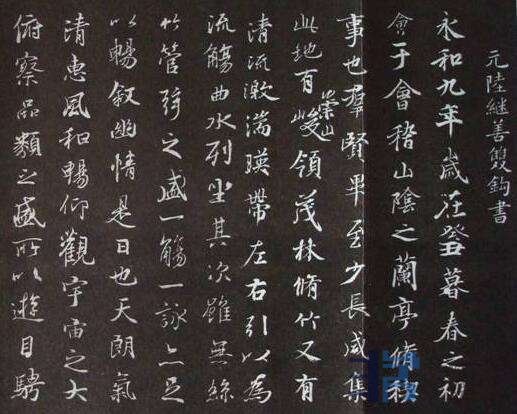 元陸繼善雙鈎書
永和九年歲在癸丑暮春之初
會于會稽山陰之蘭亭脩稧
事也羣賢畢至少長咸集
此地有崇山峻領茂林脩竹又有
清流激湍暎帶左右引以為
流觴曲水列坐其次雖無絲
竹管弦之盛一觴一詠亦足
以暢叙幽情是日也天朗氣
清惠風和暢仰觀宇宙之大
俯察品類之盛所以遊目騁